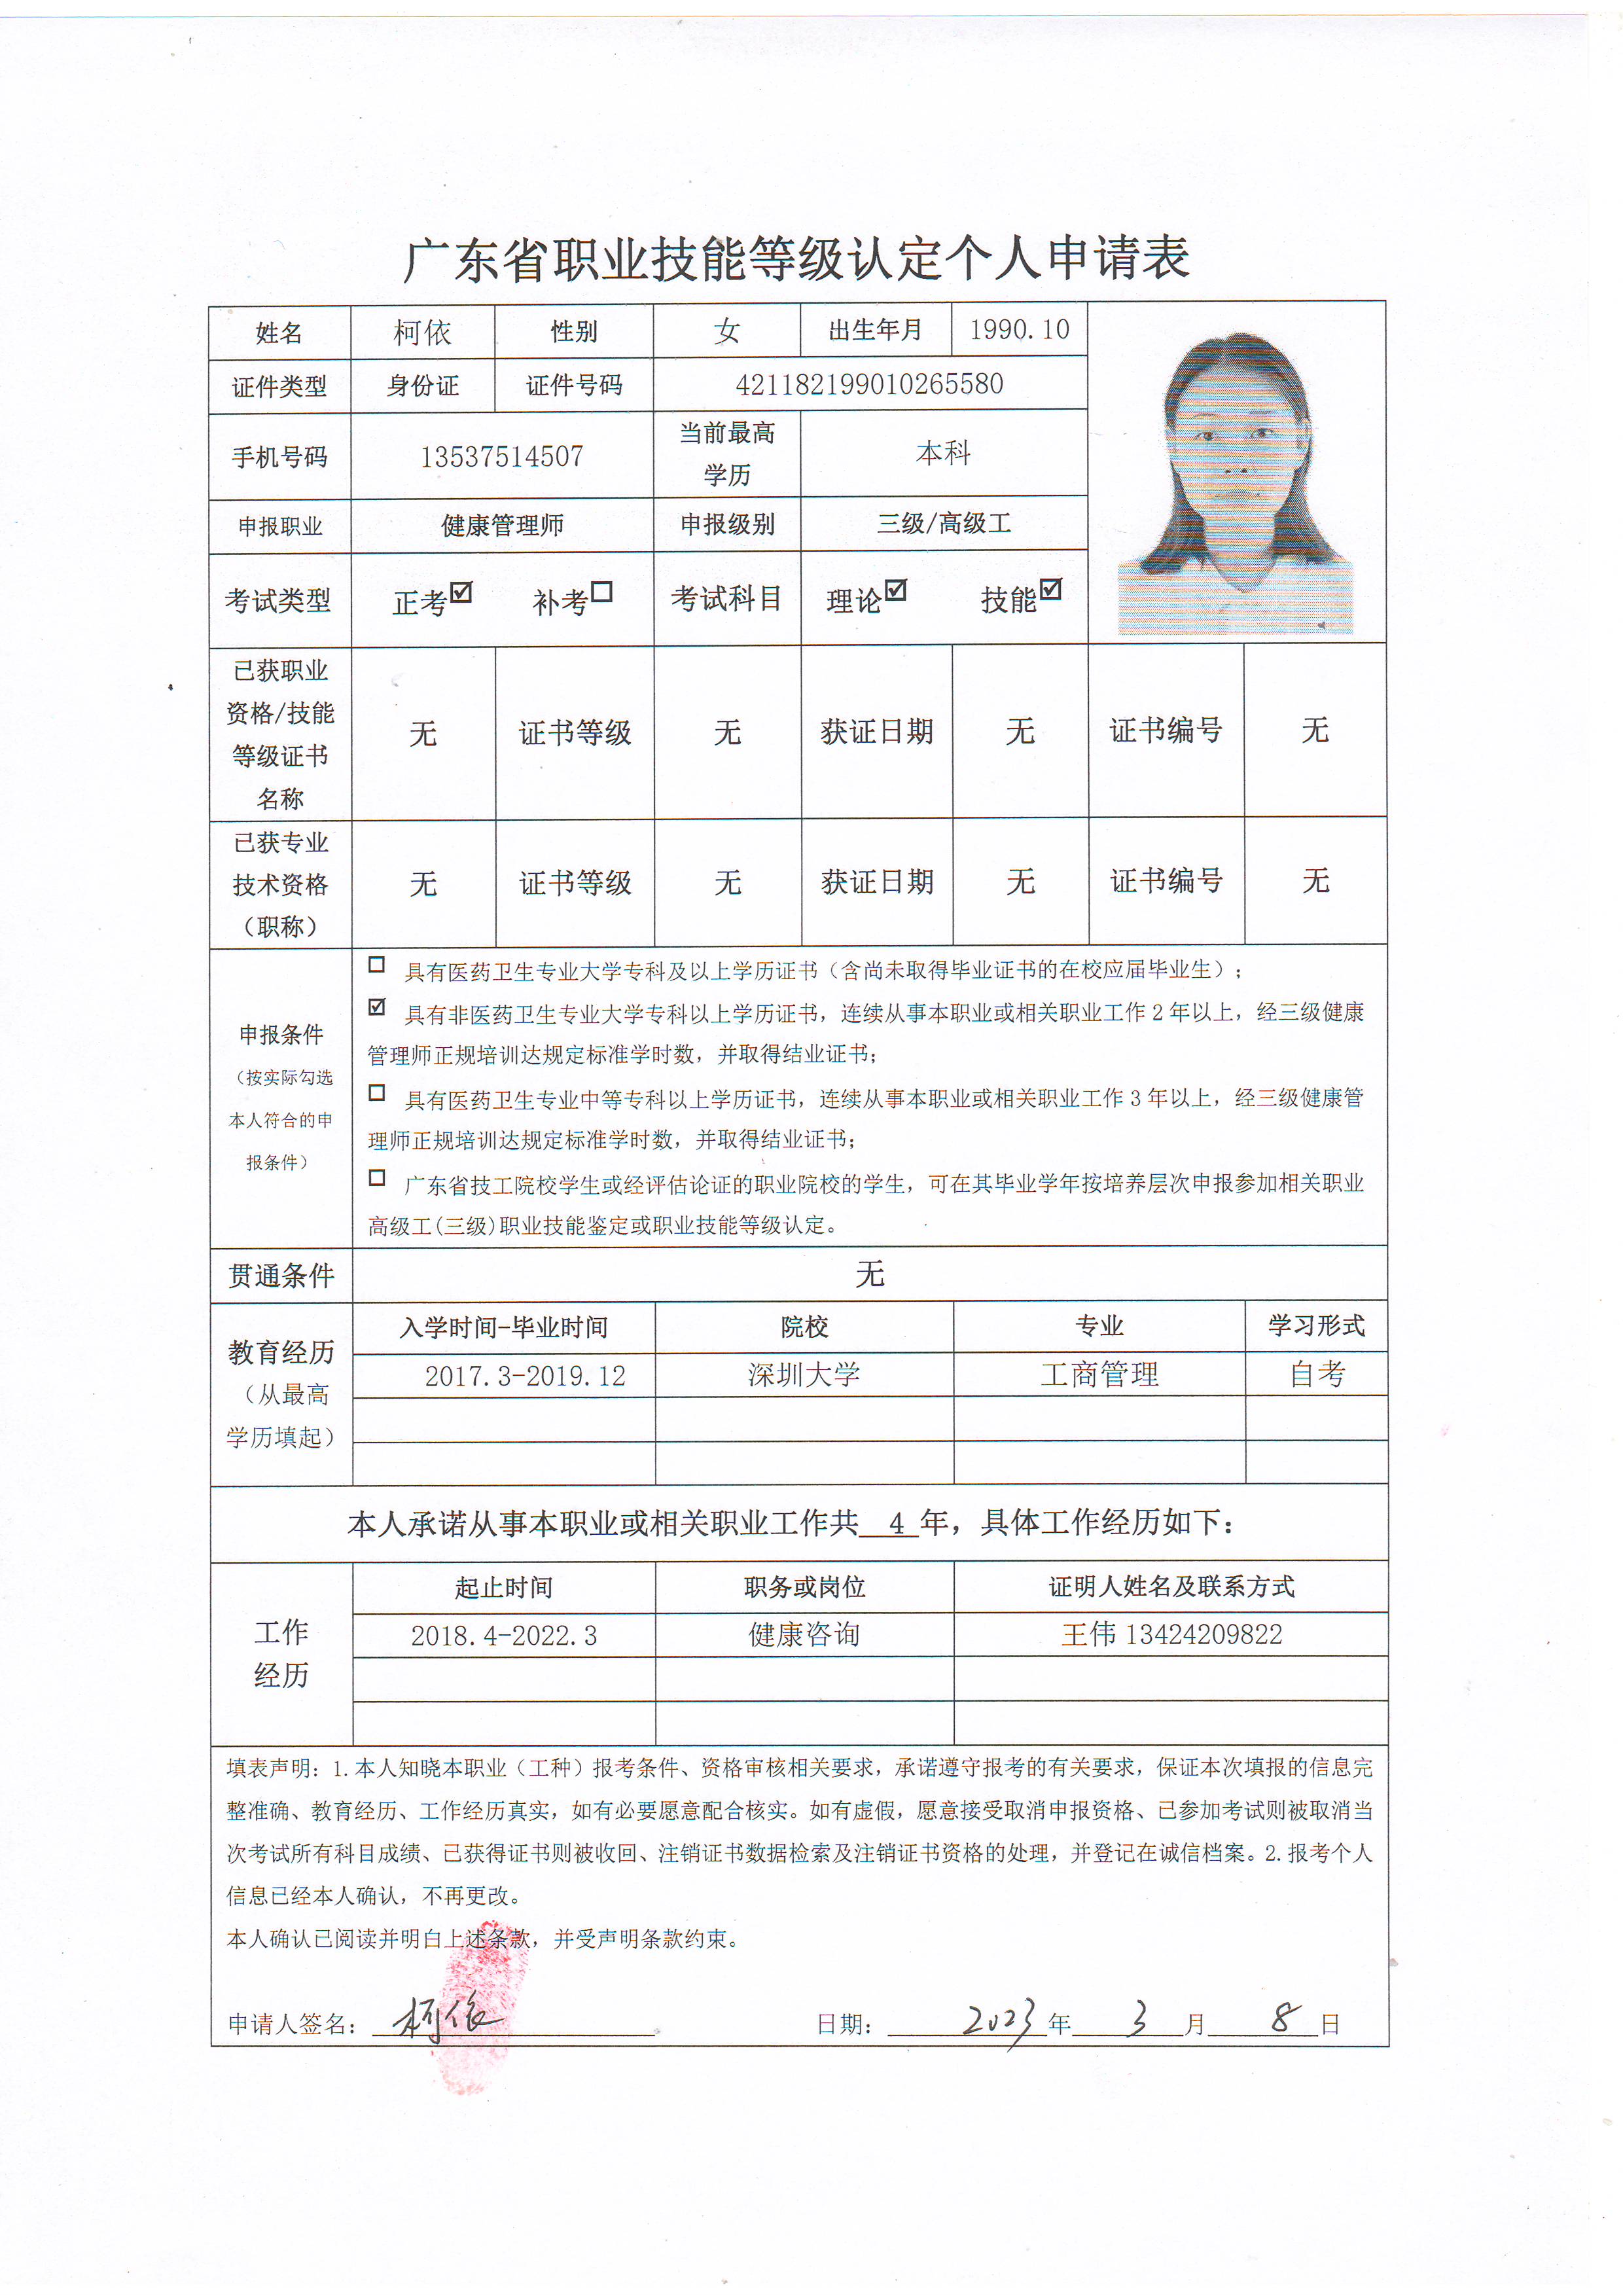 广东省职业技能等级认定个人申请表
姓名 柯依 性别 女 出生年月 1990.10
证件类型 身份证 证件号码 421182199010265580
手机号码 13537514507 当前最高学历 本科
申报职业 健康管理师 申报级别 三级/高级工
考试类型 正考☑ 补考☐ 考试科目 理论☑ 技能☑
已获职业
资格/技能
等级证书
名称
无 证书等级 无 获证日期 无 证书编号 无
已获专业
技术资格
（职称）
无 证书等级 无 获证日期 无 证书编号 无
申报条件
（按实际勾选
本人符合的申
报条件）
☐ 具有医药卫生专业大学专科及以上学历证书（含尚未取得毕业证书的在校应届毕业生）；
☑ 具有非医药卫生专业大学专科以上学历证书，连续从事本职业或相关职业工作2年以上，经三级健康
管理师正规培训达规定标准学时数，并取得结业证书；
☐ 具有医药卫生专业中等专科以上学历证书，连续从事本职业或相关职业工作3年以上，经三级健康管
理师正规培训达规定标准学时数，并取得结业证书；
☐ 广东省技工院校学生或经评估论证的职业院校的学生，可在其毕业学年按培养层次申报参加相关职业
高级工(三级)职业技能鉴定或职业技能等级认定。
贯通条件 无
教育经历
（从最高
学历填起）
入学时间-毕业时间 院校 专业 学习形式
2017.3-2019.12 深圳大学 工商管理 自考
本人承诺从事本职业或相关职业工作共 4 年，具体工作经历如下：
工作
经历
起止时间 职务或岗位 证明人姓名及联系方式
2018.4-2022.3 健康咨询 王伟 13424209822
填表声明：1.本人知晓本职业（工种）报考条件、资格审核相关要求，承诺遵守报考的有关要求，保证本次填报的信息完
整准确、教育经历、工作经历真实，如有必要愿意配合核实。如有虚假，愿意接受取消申报资格、已参加考试则被取消当
次考试所有科目成绩、已获得证书则被收回、注销证书数据检索及注销证书资格的处理，并登记在诚信档案。2.报考个人
信息已经本人确认，不再更改。
本人确认已阅读并明白上述条款，并受声明条款约束。
申请人签名：柯依 日期：2023年3月8日